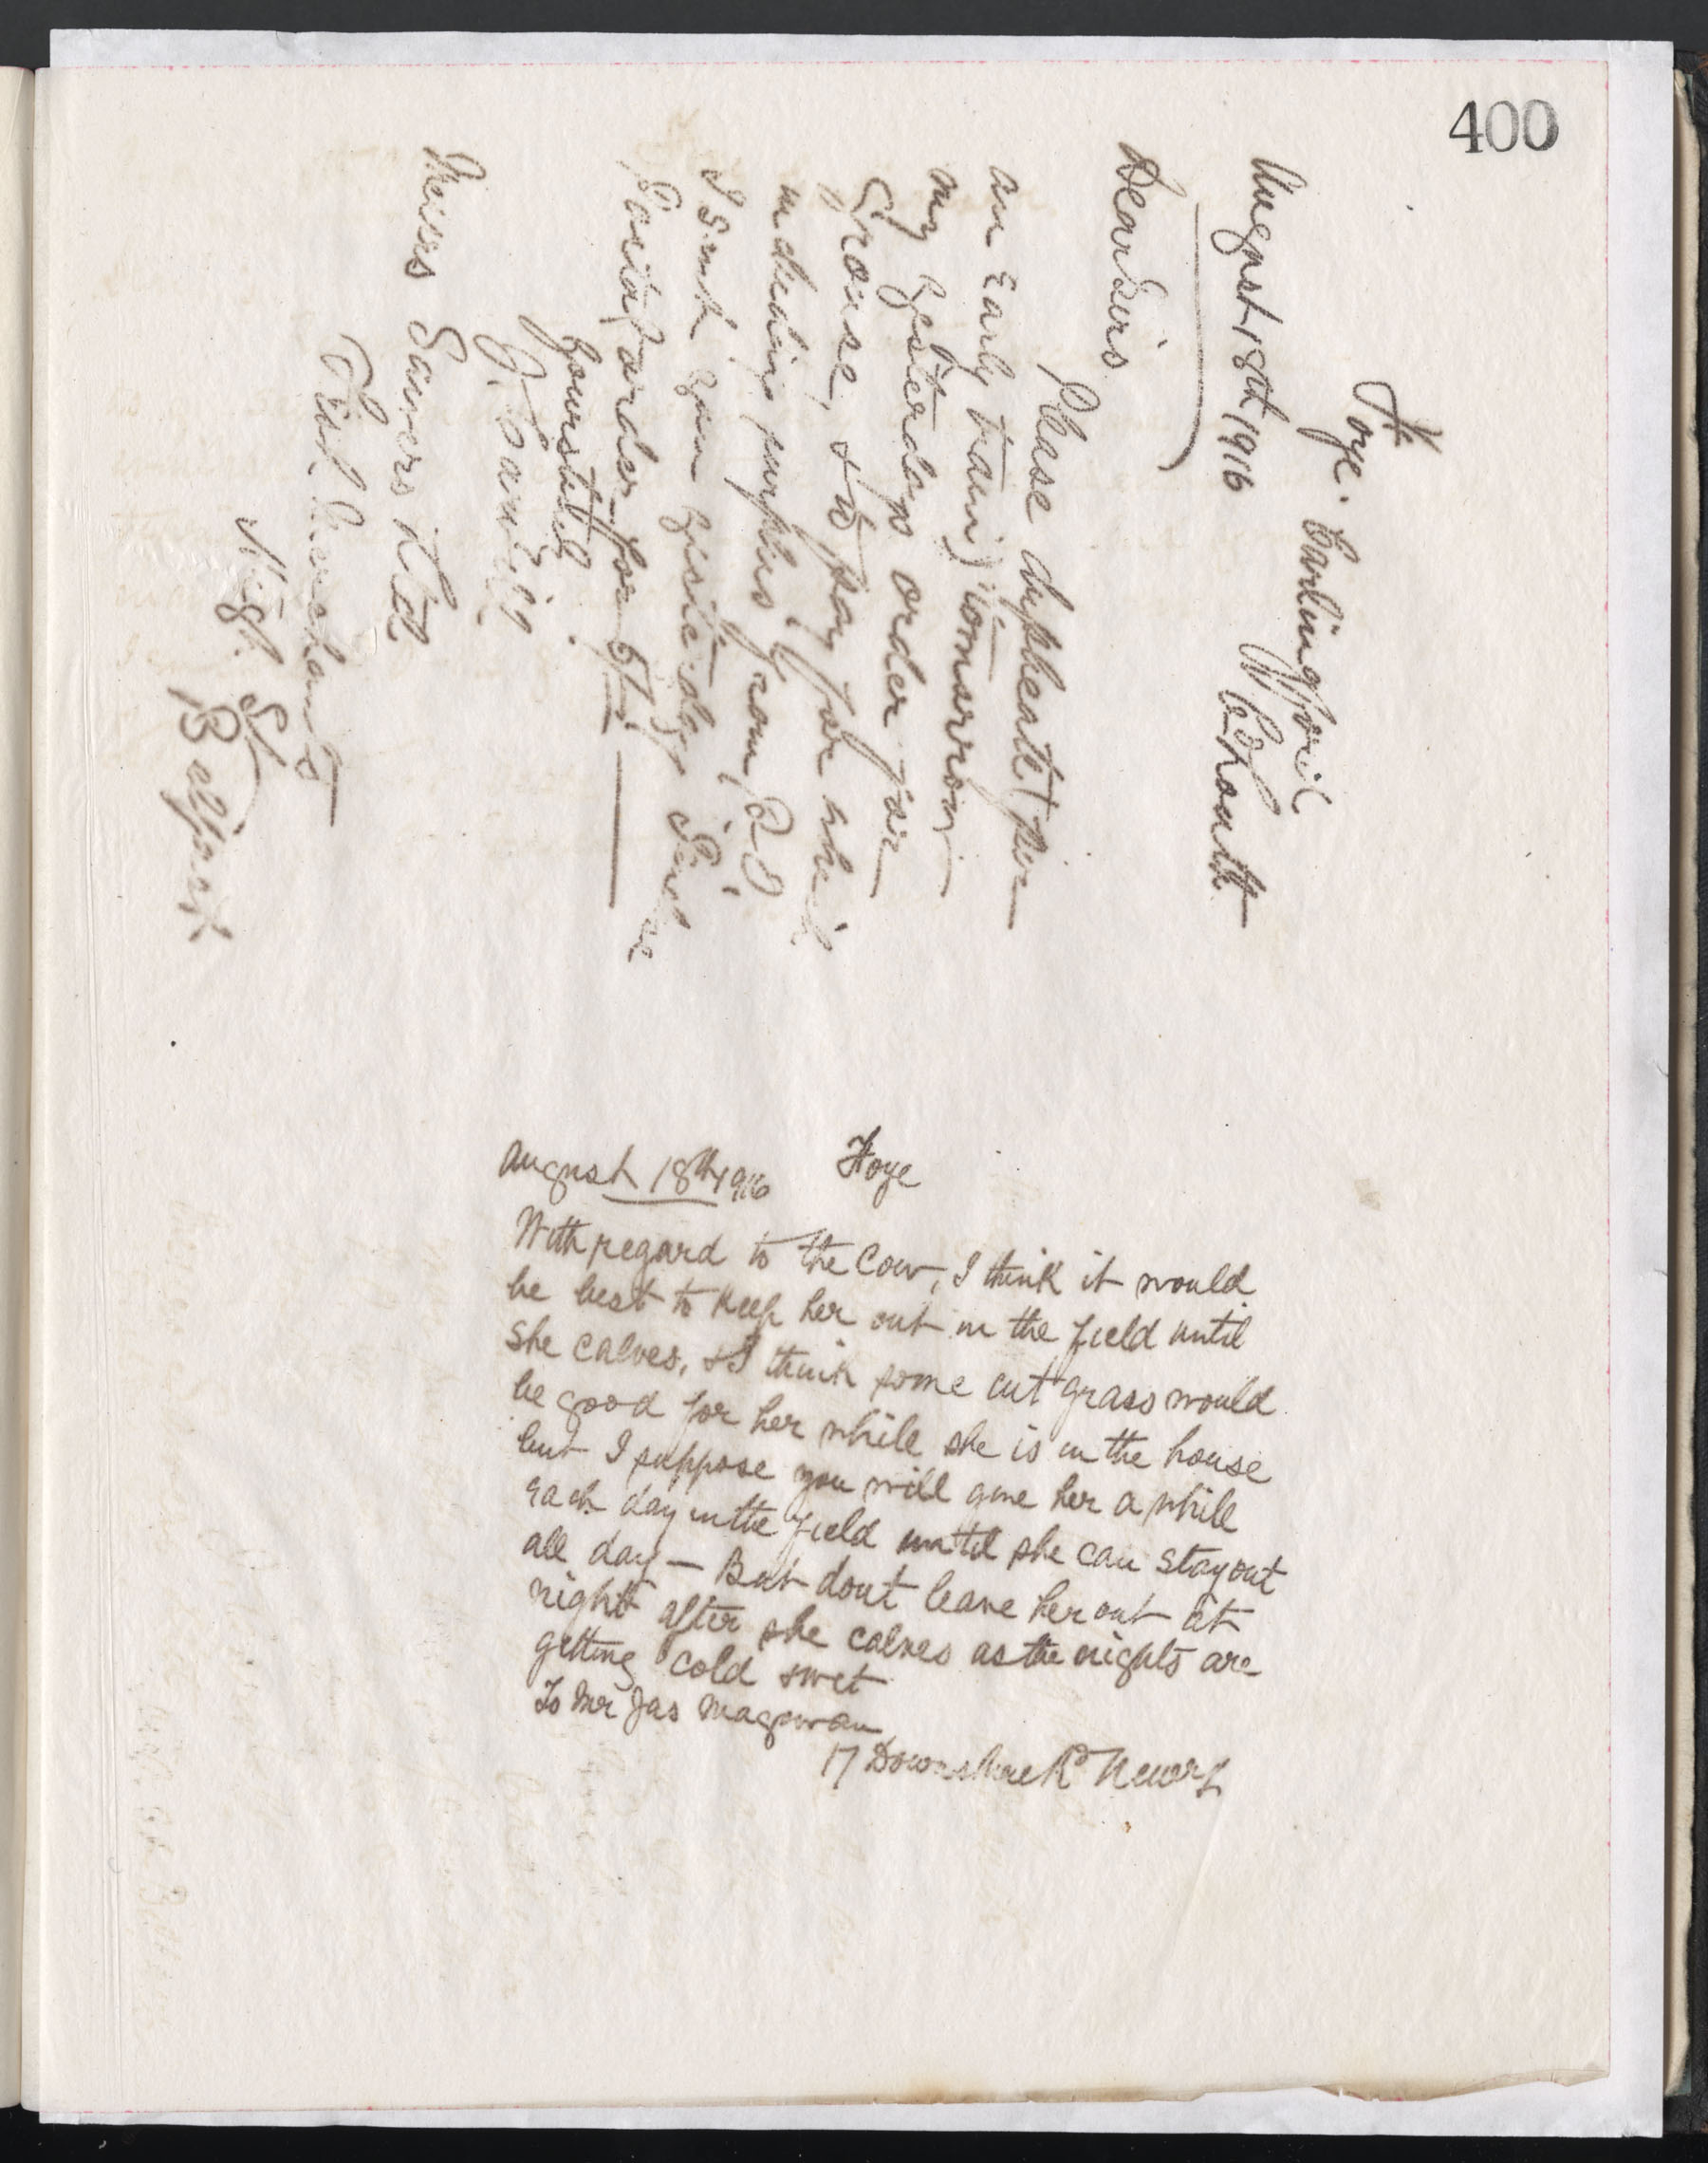 400
Foye. Carlingford
Co Louth
August 18th 1916
Dear Sirs
Please duplicate (per
an Early train) tomorrow
my yesterdays order for
Grouse, & to pay for which
including surplus from £
I sent you yesterday, I enclose
Postal order for
yours truly
Messrs Sawers Ltd
Fish Merchants
High St
Belfast
August 18th 1916 Foye
With regard to the Cow, I think it would
be best to Keep her out in the field until
she calves, & I think some cut grass would
be good for her while she is in the house
but I suppose you will give her a while
Each day in the field until she can stay out
all day — But dont leave her out at
night after she calves as the nights are
getting cold & wet
To Mr Jas Magowan
17 Downshire Rd Newry